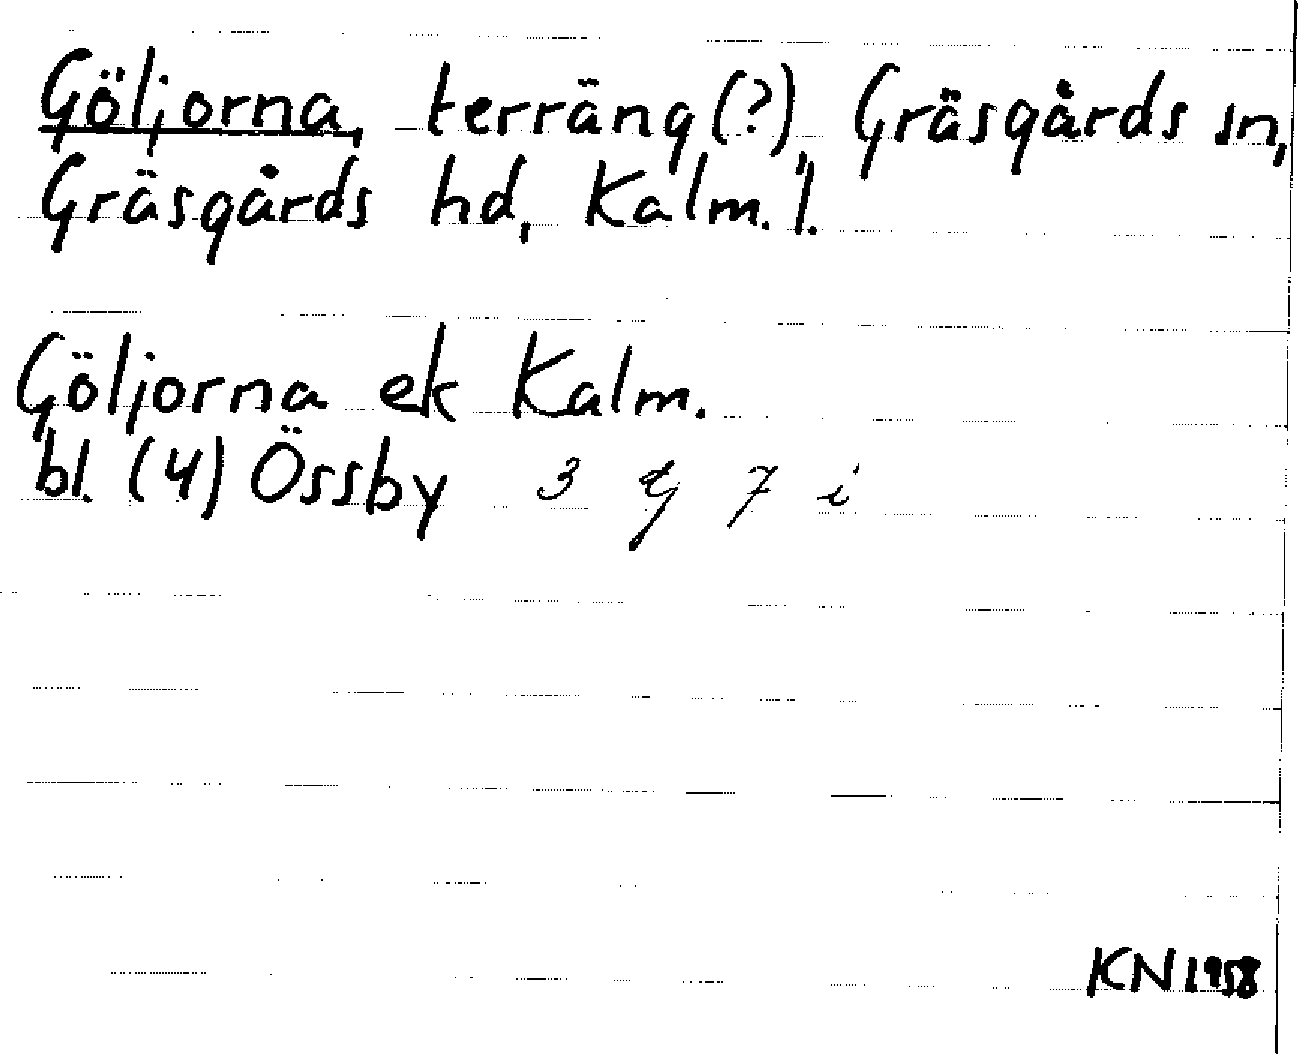 Göljorna, terräng (?), Gräsgårds sn,
Gräsgårds hd, Kalm. l.
Göljorna ek Kalm.
bl. (4) Össby 3 g 7 i
KN 1958